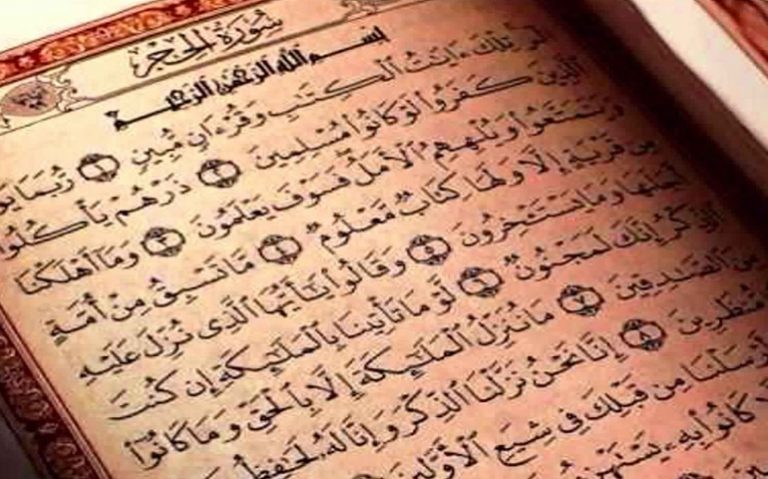 سُورَةُ الحِجْرِ
بِسْمِ اللَّهِ الرَّحْمَٰنِ الرَّحِيمِ
الٓر تِلْكَ ءَايَٰتُ ٱلْكِتَٰبِ وَقُرْءَانٍ مُّبِينٍ ١ رُّبَمَا يَوَ
ٱلَّذِينَ كَفَرُوا۟ لَوْ كَانُوا۟ مُسْلِمِينَ ٢ ذَرْهُمْ يَأْكُلُوا۟
وَيَتَمَتَّعُوا۟ وَيُلْهِهِمُ ٱلْأَمَلُ فَسَوْفَ يَعْلَمُونَ ٣ وَمَآ أَهْلَكْنَا
مِن قَرْيَةٍ إِلَّا وَلَهَا كِتَابٌ مَّعْلُومٌ ٤ مَّا تَسْبِقُ مِنْ أُمَّةٍ
أَجَلَهَا وَمَا يَسْتَـْٔخِرُونَ ٥ وَقَالُوا۟ يَٰٓأَيُّهَا ٱلَّذِى نُزِّلَ عَلَيْهِ
ٱلذِّكْرُ إِنَّكَ لَمَجْنُونٌ ٦ لَّوْ مَا تَأْتِينَا بِٱلْمَلَٰٓئِكَةِ إِن كُنتَ
مِنَ ٱلصَّٰدِقِينَ ٧ مَا نُنَزِّلُ ٱلْمَلَٰٓئِكَةَ إِلَّا بِٱلْحَقِّ وَمَا كَانُوٓا۟
مُّنظَرِينَ ٨ إِنَّا نَحْنُ نَزَّلْنَا ٱلذِّكْرَ وَإِنَّا لَهُۥ لَحَٰفِظُونَ
أَرْسَلْنَا مِن قَبْلِكَ فِى شِيَعِ ٱلْأَوَّلِينَ
كَانُوا۟ بِهِۦ يَسْتَهْزِءُونَ